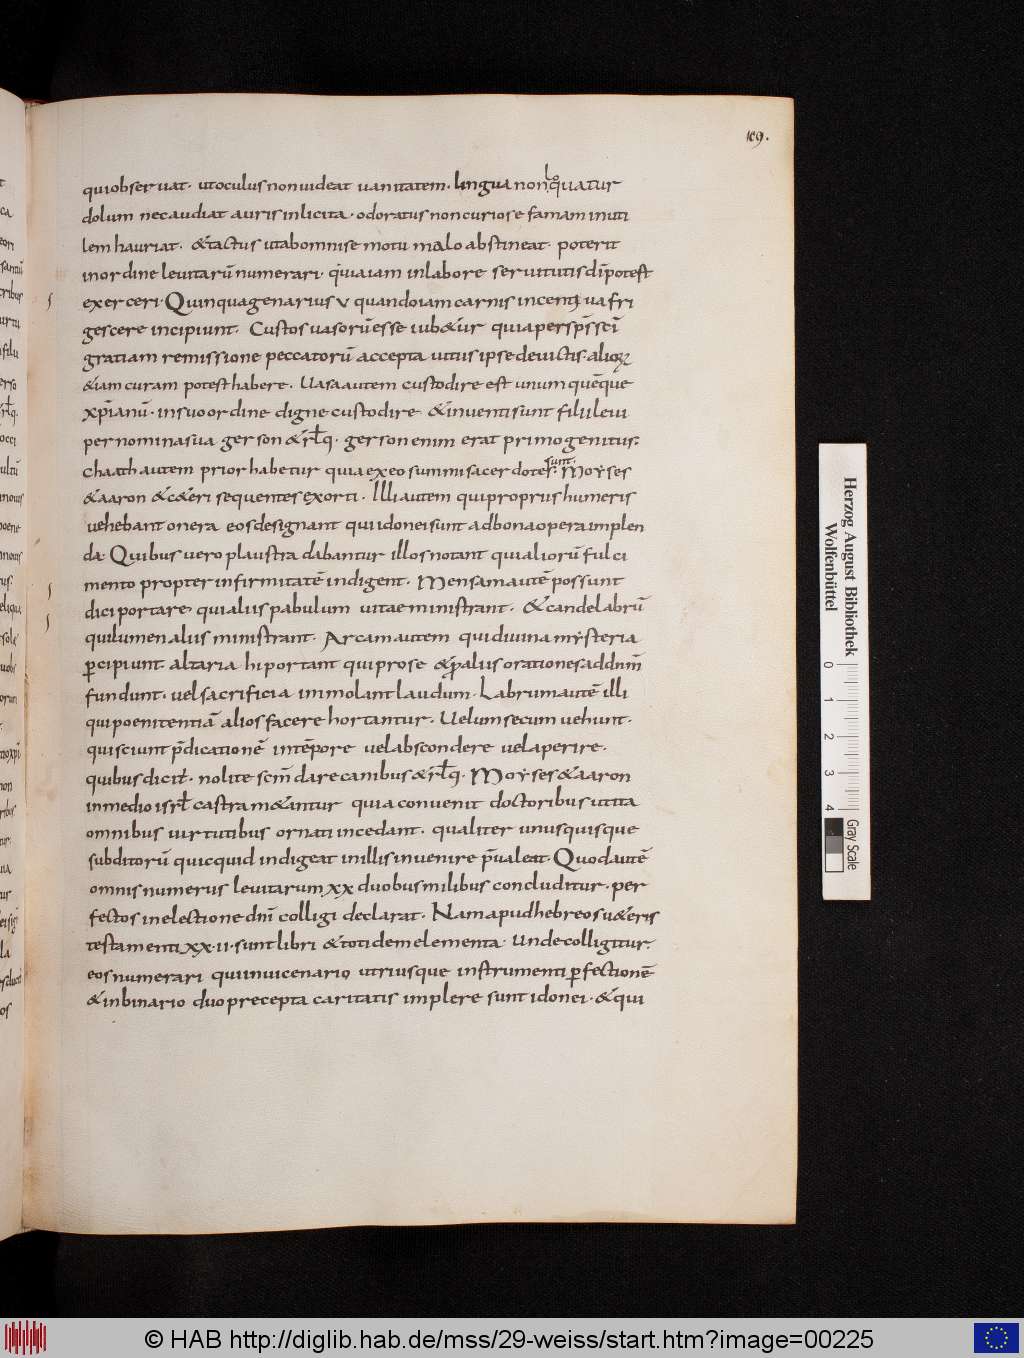 109.
qui observat. ut oculus non videat vanitatem. lingua non loquatur
dolum nec audiat auris inlicita. odoratus non curiose famam inuti
lem hauriat. & tactus ut abomnise motu malo abstineat. poterit
in ordine levitarū numerari. quia iam in labore servitutis dī potest
exerceri. Quinquagenarius v̄ quando iam carnis incentiva fri
gescere incipiunt. Custos vasorū esse iub&ur quia per sp̄s sc̄i
gratiam remissione peccatorū accepta vitiis ipse devictis. alioꝝ
&iam curam potest habere. Vasa autem custodire est unum quēque
xp̄ianū. in suo ordine digne custodire & inventi sunt filii levi
per nomina sua gerson & rl̄q. gerson enim erat primogenitus.
chaath autem prior habetur quia ex eo summi sacerdotes sunt. Moyses
& aaron & c&eri sequentes exorti. Illi autem qui propriis humeris
vehebant onera eos designant qui idonei sunt ad bona opera implen
da. Quibus vero plaustra dabantur illos notant qui aliorū fulci
mento propter infirmitatē indigent. Mensam autē possunt
dici portare, qui aliis pabulum vitae ministrant. & candelabrū
qui lumen aliis ministrant. Arcam autem qui divina mysteria
ꝑcipiunt. altaria hi portant qui pro se & p̄ aliis orationes ad dn̄m
fundunt. vel sacrificia immolant laudum. Labrum autē illi
qui poenitentiā alios facere hortantur. Velum secum vehunt.
qui sciunt p̄dicationē in tēpore vel abscondere vel aperire.
quibus dicit̄. nolite sc̄m dare canibus & rl̄q. Moyses & aaron
in medio isrl̄ castra m&antur quia convenit doctoribus ut ita
omnibus virtutibus ornati incedant. qualiter unusquisque
subditorū quicquid indigeat in illis invenire p̄valeat. Quod autē
omnis numerus levitarum xx duobus milibus concluditur. per
fectos in electione dn̄i colligi declarat. Nam apud hebreos v&eris
testamenti xx.ii. sunt libri & totidem elementa. Unde colligitur
eos numerari qui in vicenario utriusque instrumenti ꝑfectionē
& in binario duo precepta caritatis implere sunt idonei. & qui
Herzog August Bibliothek
Wolfenbüttel
0 1 2 3 4 Gray Scale
© HAB http://diglib.hab.de/mss/29-weiss/start.htm?image=00225